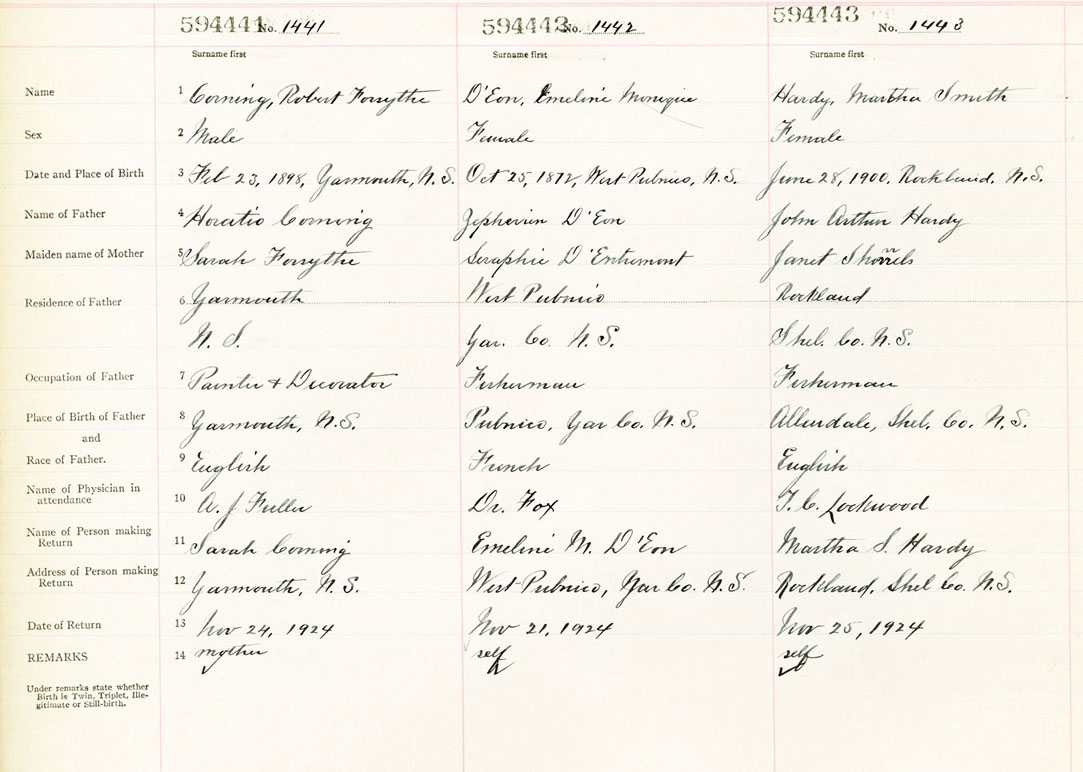 594441 No. 1441 594442 No. 1442 594443 No. 1443
Surname first Surname first Surname first
Name 1 Corning, Robert Forsythe D'Eon, Emeline Monique Hardy, Martha Smith
Sex 2 Male Female Female
Date and Place of Birth 3 Feb 23, 1898, Yarmouth, N.S. Oct 25, 1872, West Pubnico, N.S. June 28, 1900, Rockland, N.S.
Name of Father 4 Horatio Corning Zepherin D'Eon John Arthur Hardy
Maiden name of Mother 5 Sarah Forsythe Seraphie D'Entremont Janet
Residence of Father 6 Yarmouth West Pubnico Rockland
N.S. Yar. Co. N.S. Shel. Co. N.S.
Occupation of Father 7 Painter & Decorator Fisherman Fisherman
Place of Birth of Father 8 Yarmouth, N.S. Pubnico, Yar Co. N.S. Allendale, Shel. Co. N.S.
and
Race of Father. 9 English French English
Name of Physician in
attendance 10 A. J Fuller Dr. Fox T. C. Lockwood
Name of Person making
Return 11 Sarah Corning Emeline M. D'Eon Martha S. Hardy
Address of Person making
Return 12 Yarmouth, N.S. West Pubnico, Yar Co. N.S. Rockland, Shel Co. N.S.
Date of Return 13 Nov 24, 1924 Nov 21, 1924 Nov 25, 1924
REMARKS 14 mother self self
Under remarks state whether
Birth is Twin, Triplet, Ille-
gitimate or Still-birth.